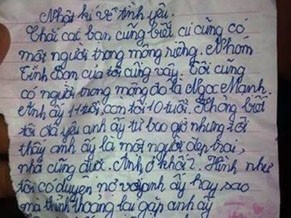 Nhật kí về tình yêu.
Chắc các bạn cũng biết ai cũng có
một người trong mộng riêng. Nhóm
Tình Bạn của tôi cũng vậy. Tôi cũng
có người trong mộng đó là Ngọc Mạnh.
Anh ấy 11 tuổi, còn tôi 10 tuổi. Không biết
tôi đã yêu anh ấy từ bao giờ nhưng tôi
thấy anh ấy là một người đẹp trai,
nhà cũng được. Anh ở khối 2. Hình như
tôi có duyên nợ với anh ấy hay sao
mà thỉnh thoảng lại gặp anh ấy